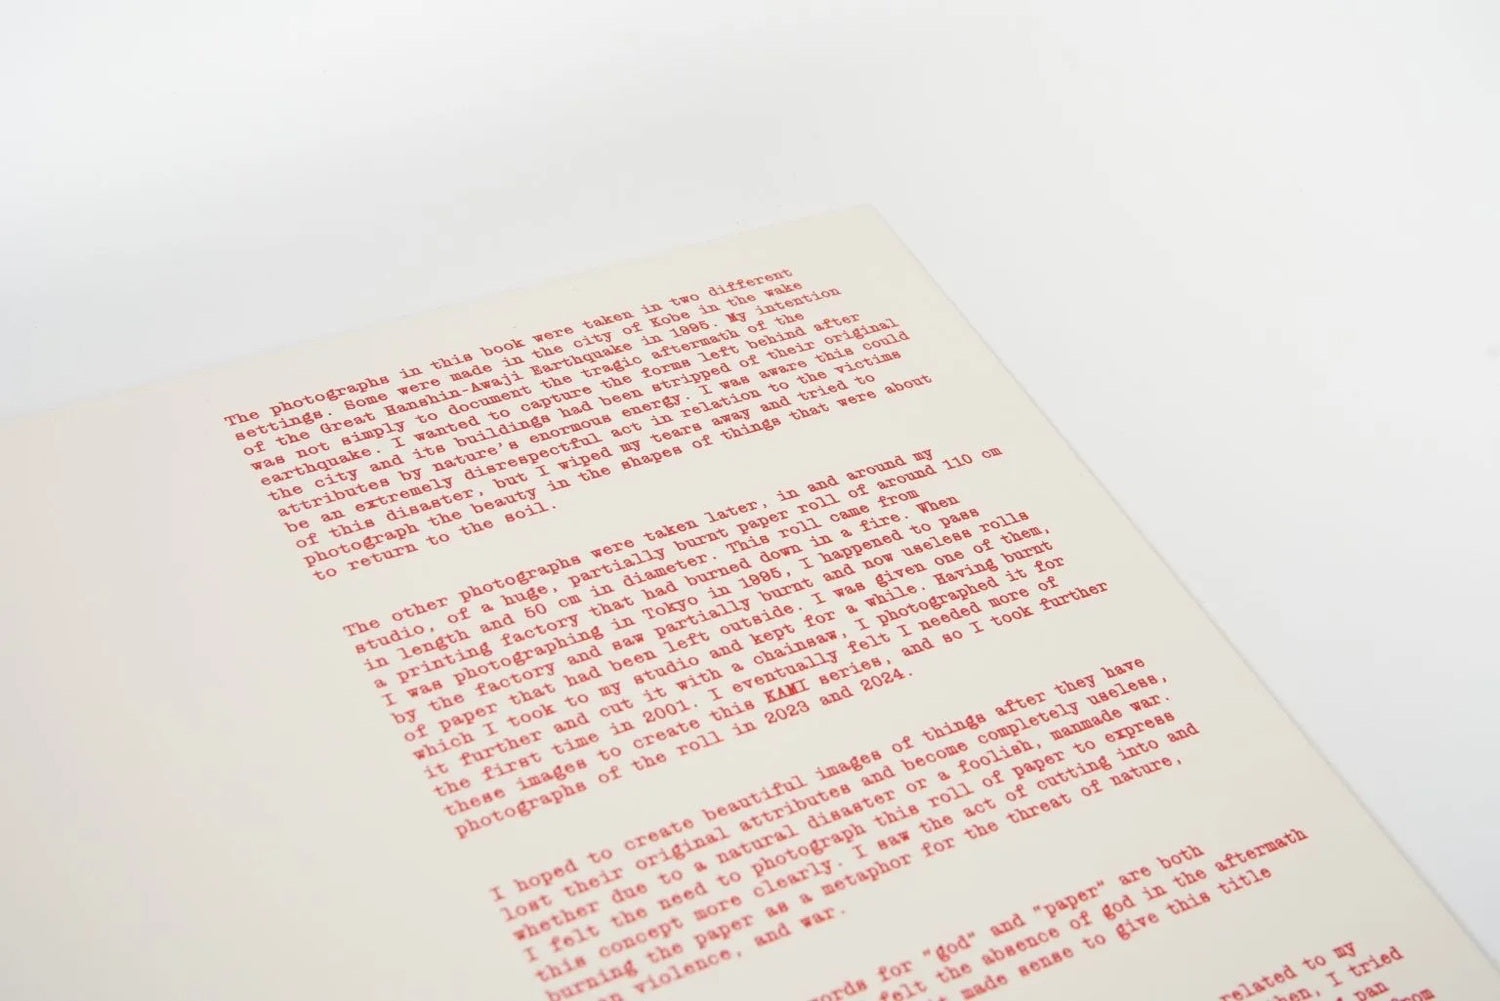 The photographs in this book were taken in two different
settings. Some were made in the city of Kobe in the wake
of the Great Hanshin-Awaji Earthquake in 1995. My intention
was not simply to document the tragic aftermath of the
earthquake. I wanted to capture the forms left behind after
the city and its buildings had been stripped of their original
attributes by nature's enormous energy. I was aware this could
be an extremely disrespectful act in relation to the victims
of this disaster, but I wiped my tears away and tried to
photograph the beauty in the shapes of things that were about
to return to the soil.
The other photographs were taken later, in and around my
studio, of a huge, partially burnt paper roll of around 110 cm
in length and 50 cm in diameter. This roll came from
a printing factory that had burned down in a fire. When
I was photographing in Tokyo in 1995, I happened to pass
by the factory and saw partially burnt and now useless rolls
of paper that had been left outside. I was given one of them,
which I took to my studio and kept for a while. Having burnt
it further and cut it with a chainsaw, I photographed it for
the first time in 2001. I eventually felt I needed more of
these images to create this KAMI series, and so I took further
photographs of the roll in 2023 and 2024.
I hoped to create beautiful images of things after they have
lost their original attributes and become completely useless,
whether due to a natural disaster or a foolish, manmade war.
I felt the need to photograph this roll of paper to express
this concept more clearly. I saw the act of cutting into and
burning the paper as a metaphor for the threat of nature,
violence, and war.
words for "god" and "paper" are both
felt the absence of god in the aftermath
made sense to give this title
related to my
I tried